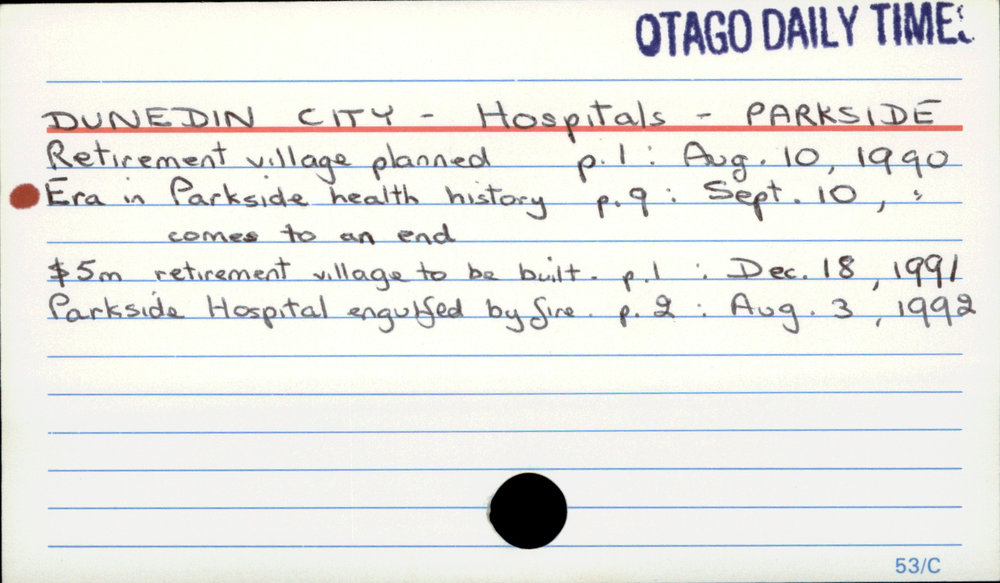 OTAGO DAILY TIMES
DUNEDIN CITY - Hospitals - PARKSIDE
Retirement village planned p.1 : Aug. 10, 1990
Era in Parkside health history p.9 : Sept. 10, "
comes to an end
$5m retirement village to be built. p.1 : Dec. 18, 1991
Parkside Hospital engulfed by fire. p.2 : Aug. 3, 1992
53/C